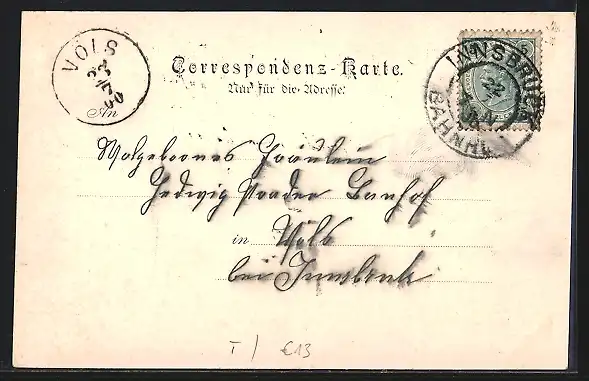 VÖLS
23/7
00
Correspondenz-Karte.
Nur für die Adresse:
INNSBRUCK
22
BAHNHOF
An
Wolgebornes Fräulein
Hedwig Prader Banhof
in Völs
bei Innsbruk
T/ €13